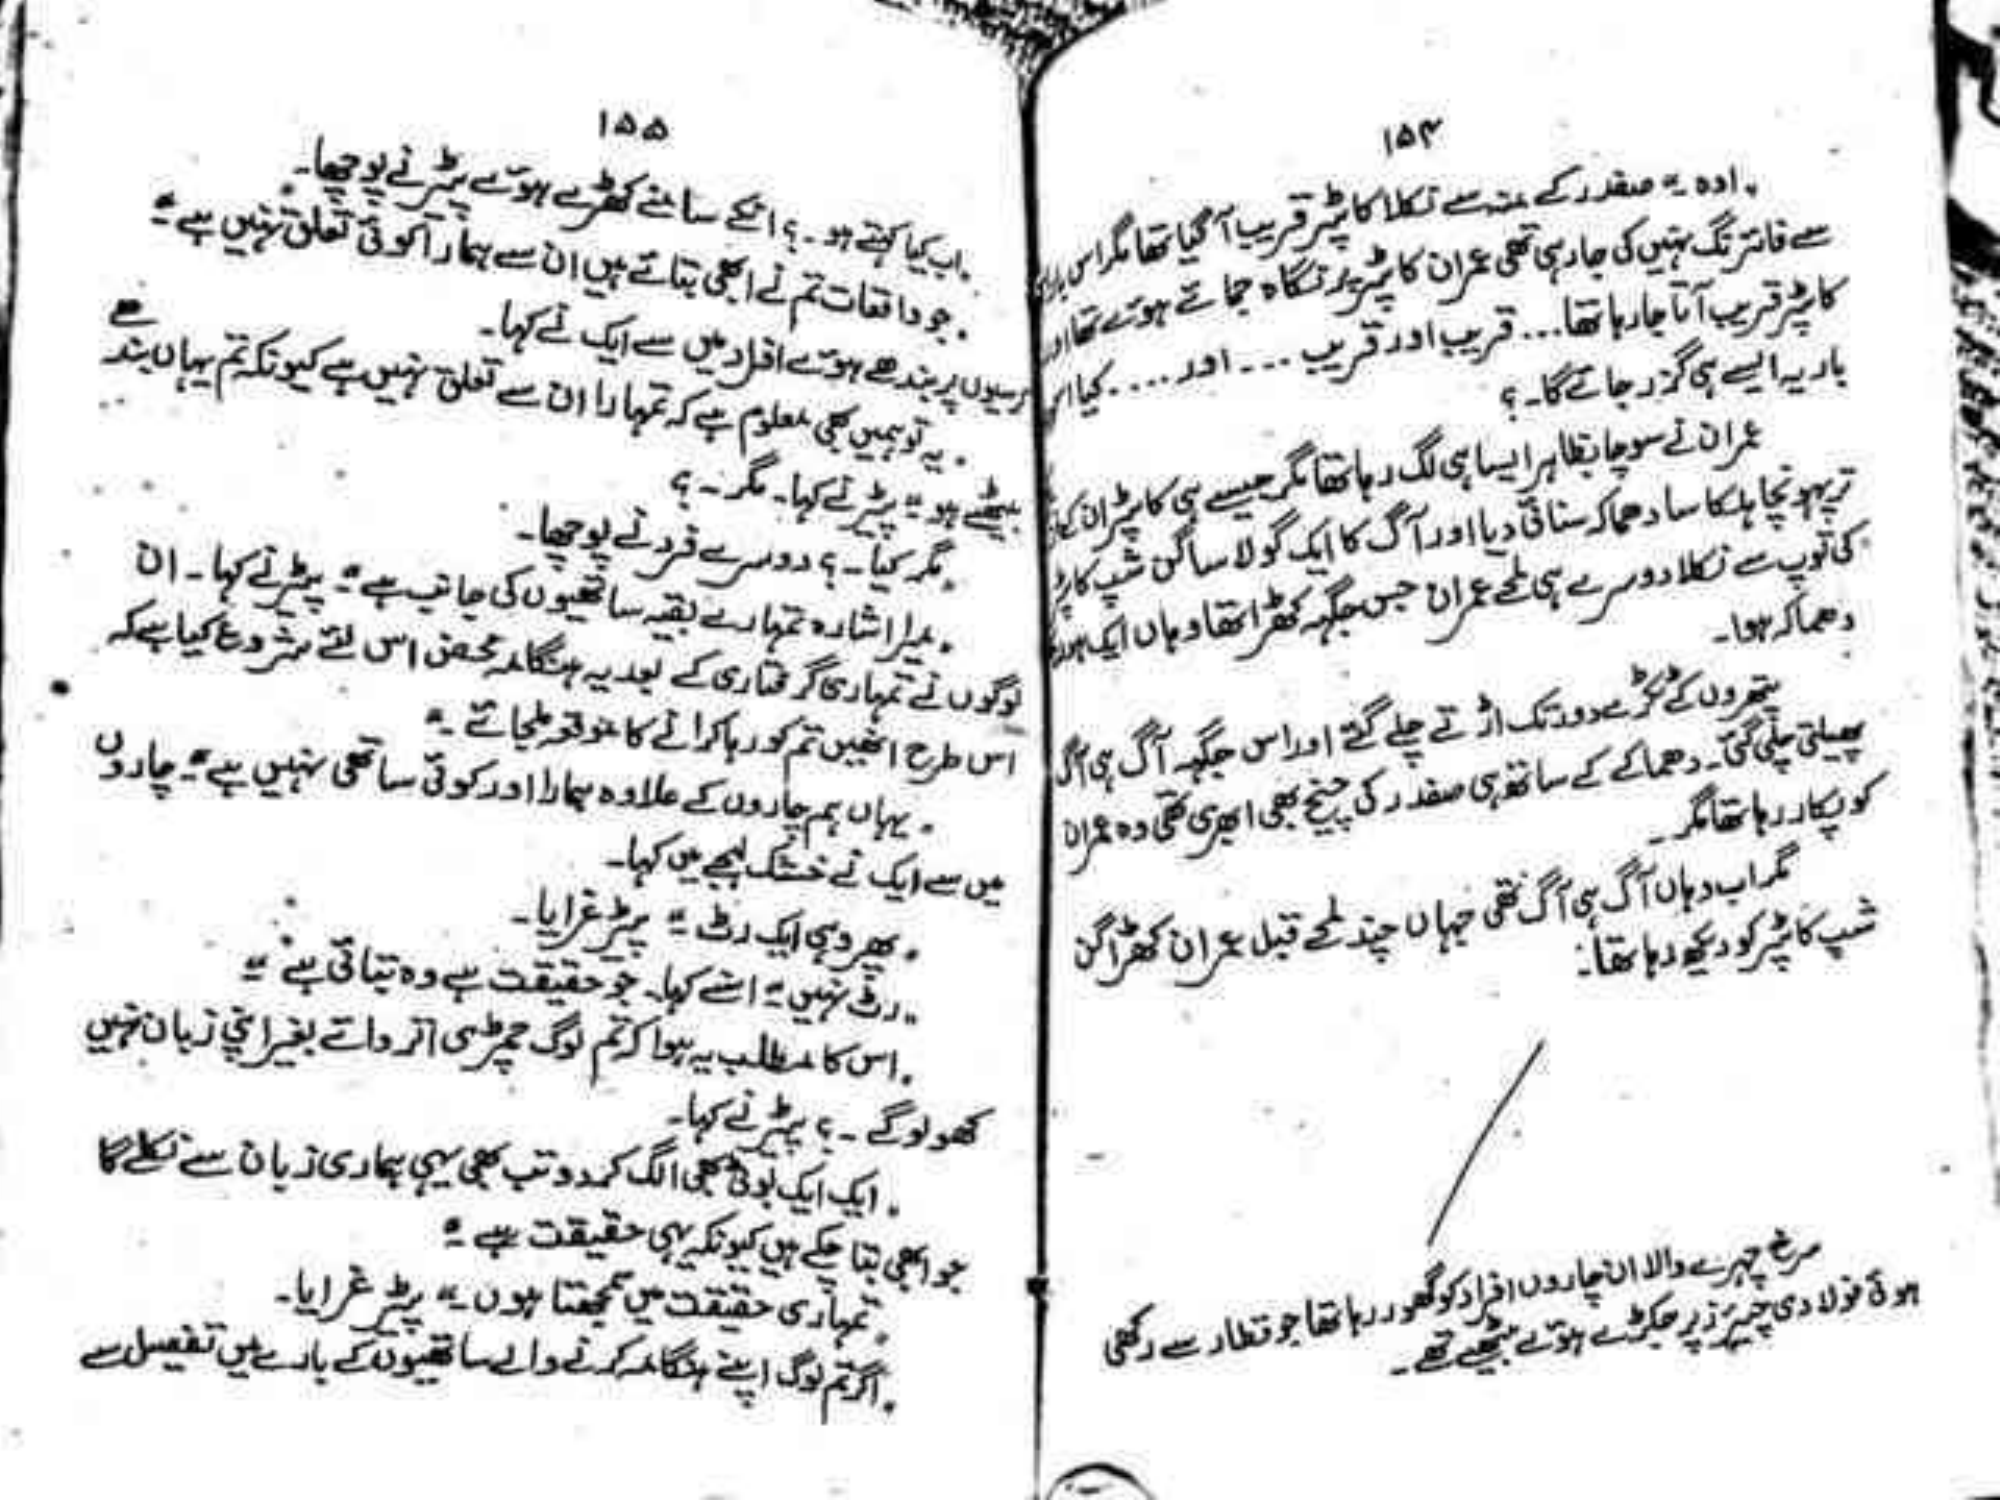 ۱۵۴
"اوہ ۔" صفدر کے منہ سے نکلا کاپٹر قریب آگیا تھا مگر اس بار اس
سے فائرنگ نہیں کی جارہی تھی عمران کاپٹر پر نگاہ جمائے ہوئے تھا اور
کاپٹر قریب آتا جارہا تھا... قریب اور قریب .... اور .... کیا اس
بار یہ ایسے ہی گزر جائے گا ۔ ؟
عمران نے سوچا بظاہر ایسا ہی لگ رہا تھا مگر جیسے ہی کاپٹر ان کے
پہونچا ہلکا سا دھماکہ سنائی دیا اور آگ کا ایک گولا سا گن شپ کاپٹر
کی توپ سے نکلا دوسرے ہی لمحے عمران جس جگہہ کھڑا تھا وہاں ایک
دھماکہ ہوا۔
پتھروں کے ٹکڑے دور تک اڑتے چلے گئے اور اس جگہہ آگ ہی آگ
پھیلتی چلی گئی۔ دھماکے کے ساتھ ہی صفدر کی چیخ بھی ابھری تھی وہ عمران
کو پکار رہا تھا مگر ۔
مگر اب وہاں آگ ہی آگ تھی جہاں چند لمحے قبل عمران کھڑا گن
شپ کاپٹر کو دیکھ رہا تھا۔
سرخ چہرے والا ان چاروں افراد کو گھور رہا تھا جو قطار سے رکھی
ہوئی فولادی چیئرز پر جکڑے ہوئے بیٹھے تھے۔
۱۵۵
"اب کیا کہتے ہو ۔ ؟ انکے سامنے کھڑے ہوئے پیٹر نے پوچھا۔
"جو واقعات تم نے ابھی بتائے ہیں ان سے ہمارا کوئی تعلق نہیں ہے"
رسیوں پر بندھے ہوئے افراد میں سے ایک نے کہا۔
"یہ تو ہمیں بھی معلوم ہے کہ تمہارا ان سے تعلق نہیں ہے کیونکہ تم یہاں بندھے
بیٹھے ہو" پیٹر نے کہا۔ مگر ۔ ؟
"مگر کیا ۔ ؟ دوسرے فرد نے پوچھا۔
"میرا اشارہ تمہارے بقیہ ساتھیوں کی جانب ہے" پیٹر نے کہا ۔ ان
لوگوں نے تمہاری گرفتاری کے بعد یہ ہنگامہ محض اس لئے شروع کیا ہے کہ
اس طرح انھیں تم کو رہا کرانے کا موقعہ ملجائے ۔"
"یہاں ہم چاروں کے علاوہ ہمارا اور کوئی ساتھی نہیں ہے" چاروں
میں سے ایک نے خشک لہجے میں کہا۔
"پھر وہی ایک رٹ" پیٹر غرایا۔
"رٹ نہیں" اسنے کہا۔ جو حقیقت ہے وہ بتائی ہے"
"اس کا مطلب یہ ہوا کہ تم لوگ چمڑی اتروائے بغیر اپنی زبان نہیں
کھولو گے ۔ ؟ پیٹر نے کہا۔
"ایک ایک بوٹی بھی الگ کردو تب بھی یہی ہماری زبان سے نکلے گا
جو ابھی بتا چکے ہیں کیونکہ یہی حقیقت ہے"
"تمہاری حقیقت میں سمجھتا ہوں ۔" پیٹر غرایا۔
"اگر تم لوگ اپنے ہنگامہ کرنے والے ساتھیوں کے بارے میں تفصیل سے